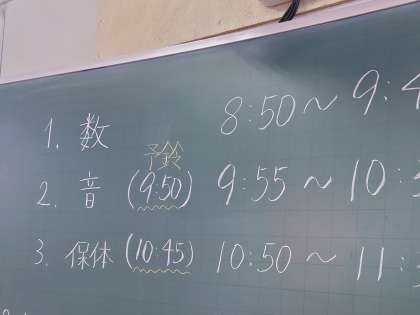 1. 数 8:50〜9:4
予鈴
2. 音 (9:50) 9:55〜10:
3. 保体 (10:45) 10:50〜11: